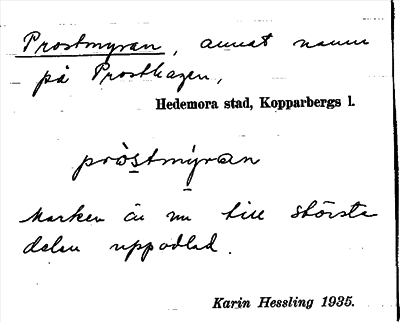 Prostmyran, annat namn
på Prosthagen,
Hedemora stad, Kopparbergs l.
pròstmýran
Marken är nu till största
delen uppodlad.
Karin Hessling 1935.